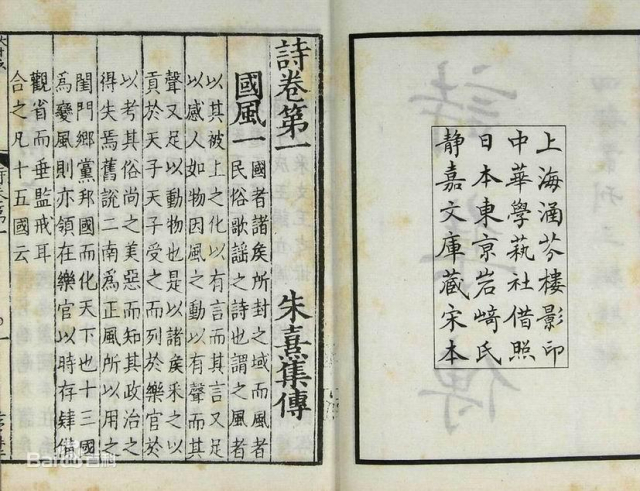 上海涵芬樓影印
中華學蓺社借照
日本東京岩崎氏
静嘉文庫藏宋本
詩卷第一
朱熹集傳
國風一
國者諸侯所封之域而風者
民俗歌謡之詩也謂之風者
以其被上之化以有言而其言又足
以感人如物因風之動以有聲而其
聲又足以動物也是以諸侯采之以
貢於天子天子受之而列於樂官於
以考其俗尚之美惡而知其政治之
得失焉舊說二南爲正風所以用之
閨門鄉黨邦國而化天下也十三國
爲變風則亦領在樂官以時存肄備
觀省而垂監戒耳
合之凡十五國云
Baidu百科